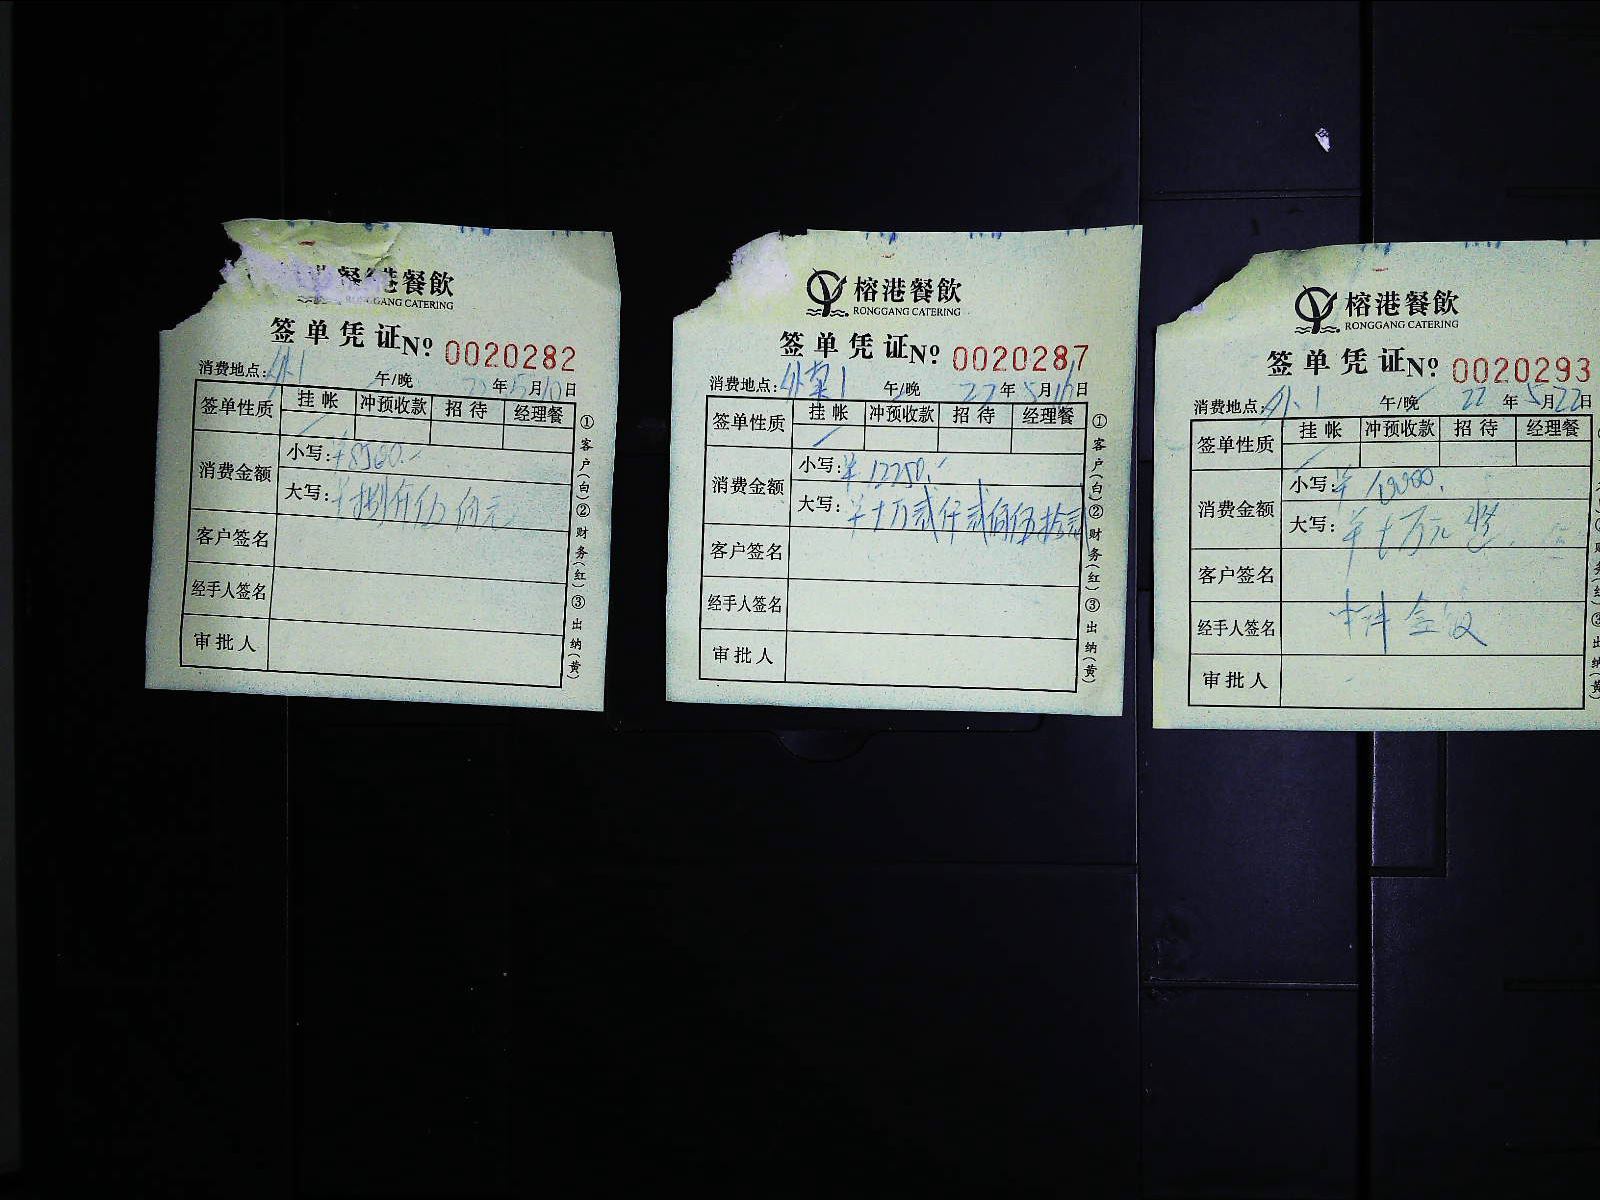 餐饮港餐飲
RONGGANG CATERING
签单凭证 No 0020282
消费地点: 外1 午/晚 22年5月10日
签单性质 挂帐 冲预收款 招待 经理餐
消费金额
小写: ¥8500.-
大写: ¥捌仟伍佰元
客户签名
经手人签名
审批人
①客户(白)②财务(红)③出纳(黄)
榕港餐飲
RONGGANG CATERING
签单凭证 No 0020287
消费地点: 外 1 午/晚 22年5月16日
签单性质 挂帐 冲预收款 招待 经理餐
消费金额
小写: ¥12250.-
大写: ¥十万贰仟贰佰伍拾
客户签名
经手人签名
审批人
①客户(白)②财务(红)③出纳(黄)
榕港餐飲
RONGGANG CATERING
签单凭证 No 0020293
消费地点: 外1 午/晚 22年5月22日
签单性质 挂帐 冲预收款 招待 经理餐
消费金额
小写: ¥10000.
大写: ¥十万元整.
客户签名
经手人签名
审批人